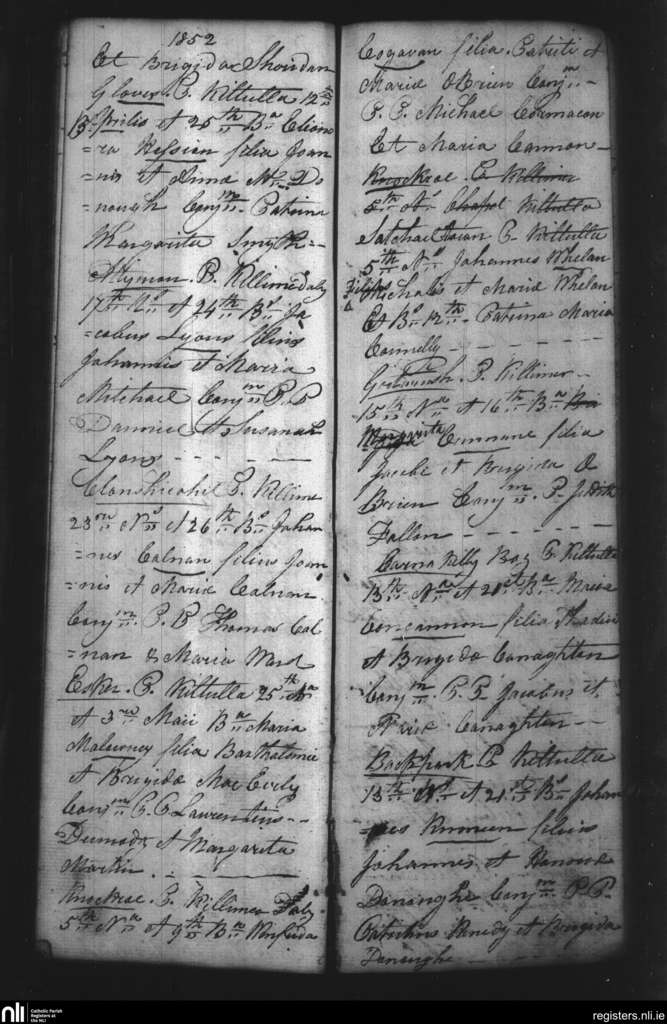 1852
Et Brigidae Sheridan
Glover P. Kiltulla 12th
Aprilis et 25th Ba Elion
=ra Hession filia Joan
=nis et Anna Mc Do
=nough Conjm Patrina
Margarita Smyth =
Attymon P. Killimordaly
17th Ns et 24th Bs Ja
=cobus Lyons filius
Johannis et Maria
Mitchael Conjm P.P.
Daniel et Susanah
Lyons - - - -
Clonshicahil P. Killime
23rd Ns et 26th Bs Johan
=nes Calnan filius Joan
=nis et Mariae Calnan
Conjm P.P. Thomas Cal
=nan & Maria Ward
Esker P. Kiltulla 25th Na
et 3rd Maii Ba Maria
Mulowney filia Bartholomei
et Brigidae Mac Evely
Conjm P.P. Laurentius - -
Dermody et Margarita
Martin - - - -
Knockroe P. Killimer Daly
5th Na et 9th Ba Honorida
Cogavan filia Patritii et
Mariae OBrien Conjm -
P.P. Michael Cormacan
Et Maria Cannon -
Knockroe P. Killimer
8th Ns Chapel Kiltulla
P. Kiltulla
5th Ns Johannes Whelan
Filius Michalis et Mariae Whelan
Et Bs 12th Patrina Maria
Connelly - - - -
P. Killimer -
15th Na et 16th Ba
Margarita Cunnane filia
Jacobi et Brigida O
Brien Conjm P. Judith
Fallon - - - -
Carna Kelly Beg P. Kiltulla
13th Na et 20th Ba Maria
Concannon filia Thadei
et Brigidae Conaghten
Conjm P.P. Jacobus et
Conaghten - -
Backpark P. Kiltulla
13th Ns et 21st Bs Johan
=nes filius
Johannis et Honorae
Dananghe Conjm P.P.
Patritius Kenedy et Brigida
Dananghe - - - -
nli
Catholic Parish
Registers at
the NLI
registers.nli.ie